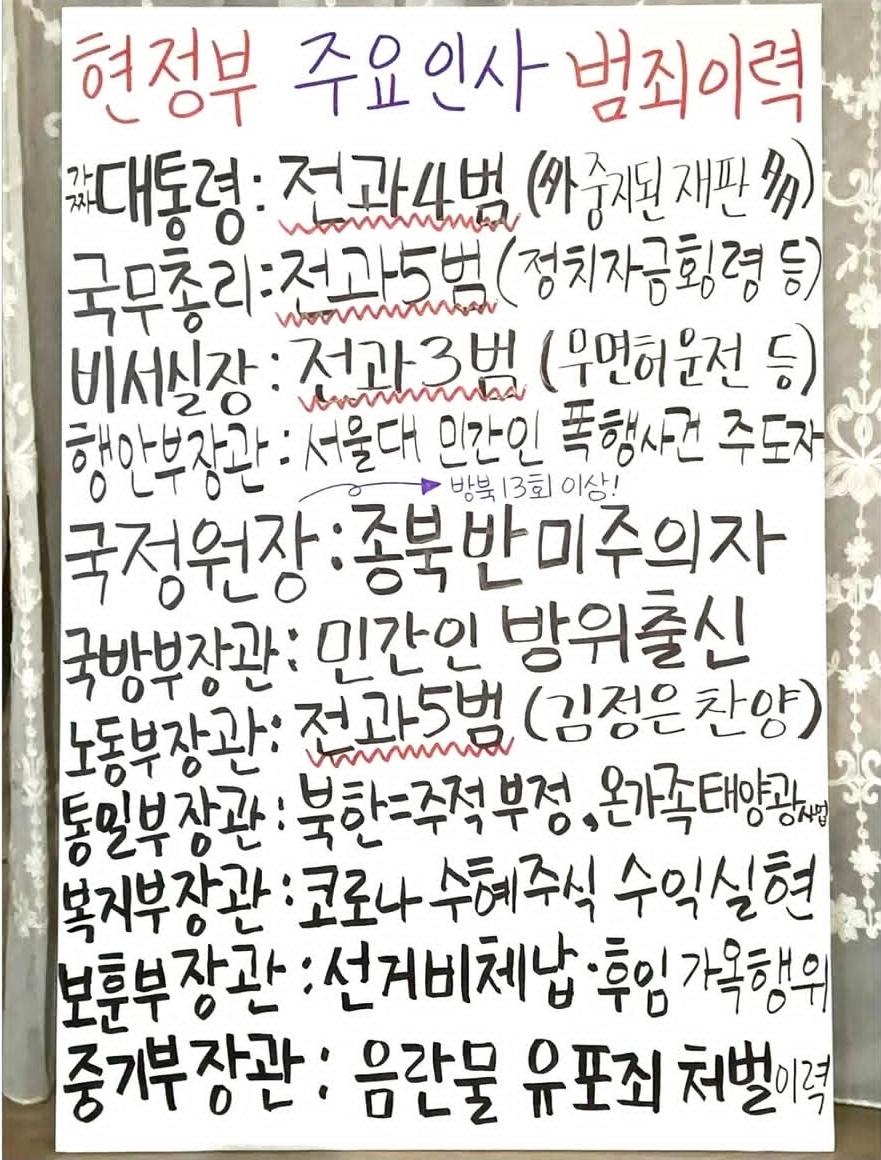 현정부 주요인사 범죄이력
가짜대통령: 전과4범 (外 중지된 재판 多)
국무총리: 전과5범 (정치자금횡령 등)
비서실장: 전과3범 (무면허운전 등)
행안부장관: 서울대 민간인 폭행사건 주도자
방북13회 이상!
국정원장: 종북반미주의자
국방부장관: 민간인 방위출신
노동부장관: 전과5범 (김정은 찬양)
통일부장관: 북한=주적 부정, 온가족태양광사업
복지부장관: 코로나 수혜주식 수익실현
보훈부장관: 선거비체납·후임 가옥행위
중기부장관: 음란물 유포죄 처벌이력